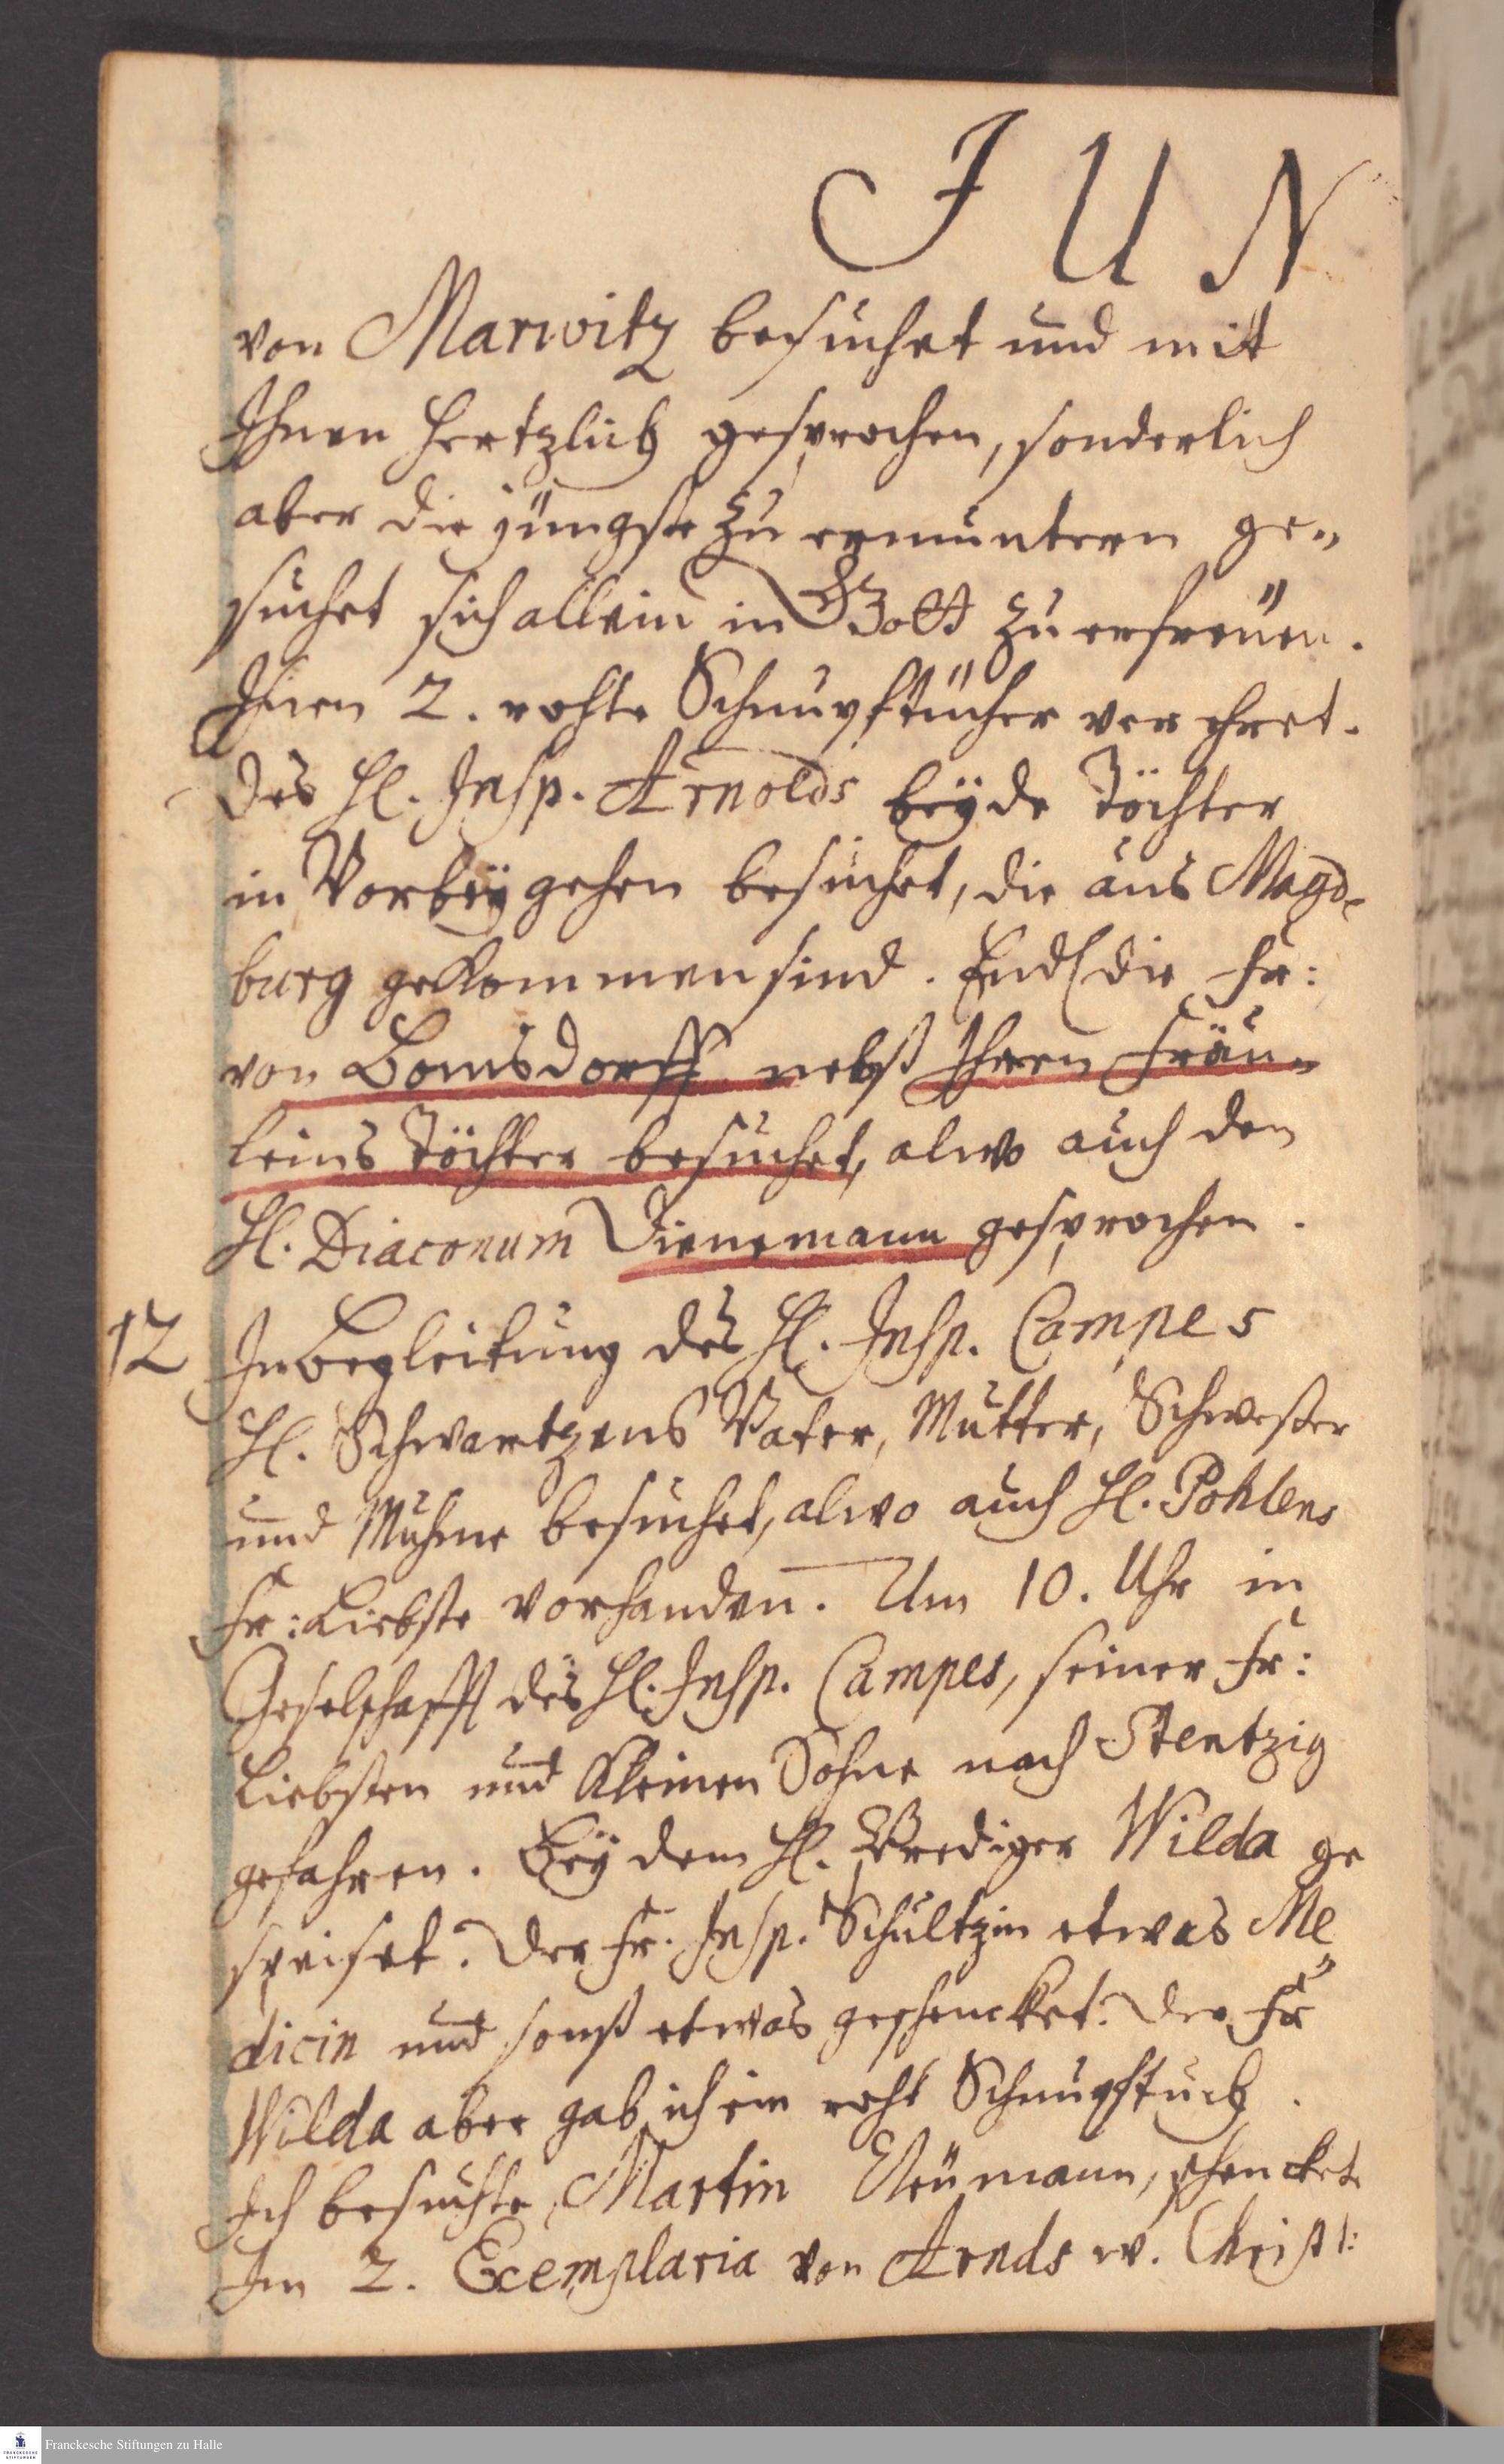 JUN
von Marwitz besuchet und mit
Ihnen hertzlich gesprochen, sonderlich
aber die jüngste zu ermuntern ge„
suchet sich allein in Gott zu erfreuen.
Ihnen 2. rohte Schnupftücher verehret.
Des Hl. Insp. Arnolds beyde Töchter
in Vorbeygehen besuchet, die aus Magd„
burg gekommen sind. Endl die Fr:
von Bomsdorff nebst Ihren Fräu„
leins Töchter besuchet, alwo auch den
Hl. Diaconum Dienemann gesprochen.
12 In Begleitung des Hl. Insp. Campes
Hl. Schwartzens Vater, Mutter, Schwester
und Muhme besuchet, alwo auch Hl. Pohlens
Fr: Liebste vorhanden. Um 10. Uhr in
Geselschafft des Hl. Insp. Campes, seiner Fr:
Liebsten und kleinen Sohne nach Stentzig
gefahren. Bey dem Hl. Prediger Wilda ge
speiset. Der Fr. Insp. Schultzin etwas Me„
dicin und sonst etwas geschencket. Der Fr
Wilda aber gab ich ein roht Schnupftuch.
Ich besuchte Martin Neumann, schenckte
Im 2. Exemplaria von Arnds w. Christ:
Franckesche Stiftungen zu Halle